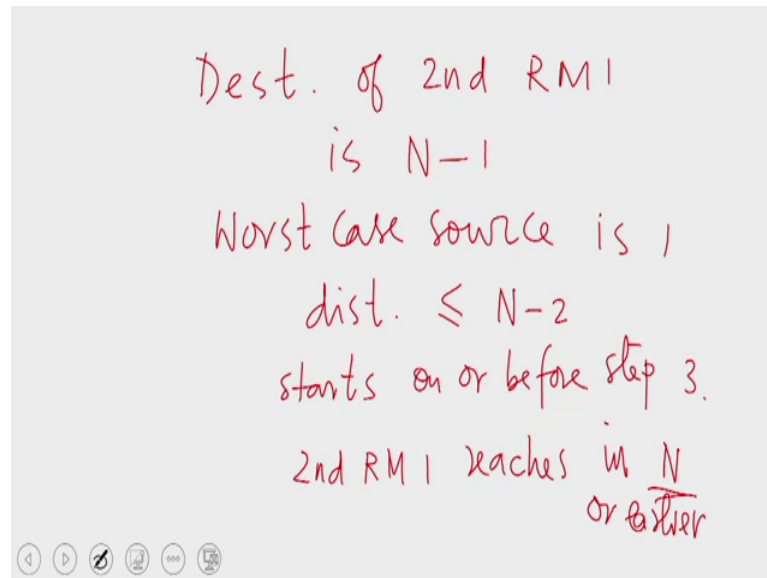 Dest. of 2nd RM1
is N-1
Worst case source is 1
dist. ≤ N-2
starts on or before step 3.
2nd RM1 reaches in N
or earlier